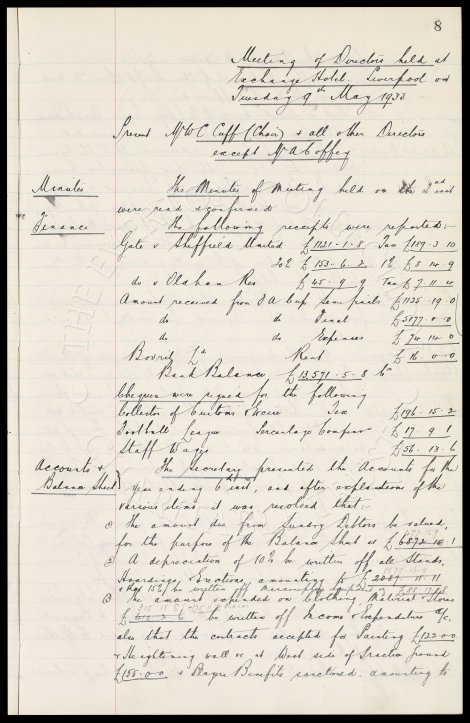 8
Meeting of Directors held at
Exchange Hotel. Liverpool on
Tuesday 9th May 1933
Present Mr W C Cuff (Chair) & all other Directors
except Mr A Coffey
Minutes The Minutes of Meeting held on the 2nd inst
were read & confirmed
Finance The following receipts were reported:-
Gate v Sheffield United £1121-1-8 Tax £189-3-10
20% £153-6-2 1% £8-14-9
do v Oldham Res £45-9-9 Tax £7-11-4
Amount received from F A Cup semi finals £1135-19-0
do do Final £5177-0-0
do do Expenses £74-14-4
Rent £16-0-0
Bank Balance £13571-5-8 Cr
Cheques were signed for the following
Collector of Customs & Excise Tax £196-15-2
Football League Percentage £17-9-1
Staff Wages £56-13-6
Accounts & The secretary presented the Accounts for the
Balance Sheet year ending 6th inst, and after explanations of the
various items, it was resolved that:-
1 The amount due from Sundry Debtors be valued
for the purpose of the Balance Sheet at £6872
2 A depreciation of 10% be written off all Stands,
Hoardings, & Erections amounting to £2087-11-11
& that 15% be written off
3 The amount expended on Clothing, Material & Stores
be written off Income & Expenditure a/c.
also that the contracts accepted for Painting £122.0.0
& Heightening wall &c at West side of Practice Ground
£155-0-0 & Players Benefits sanctioned, amounting to